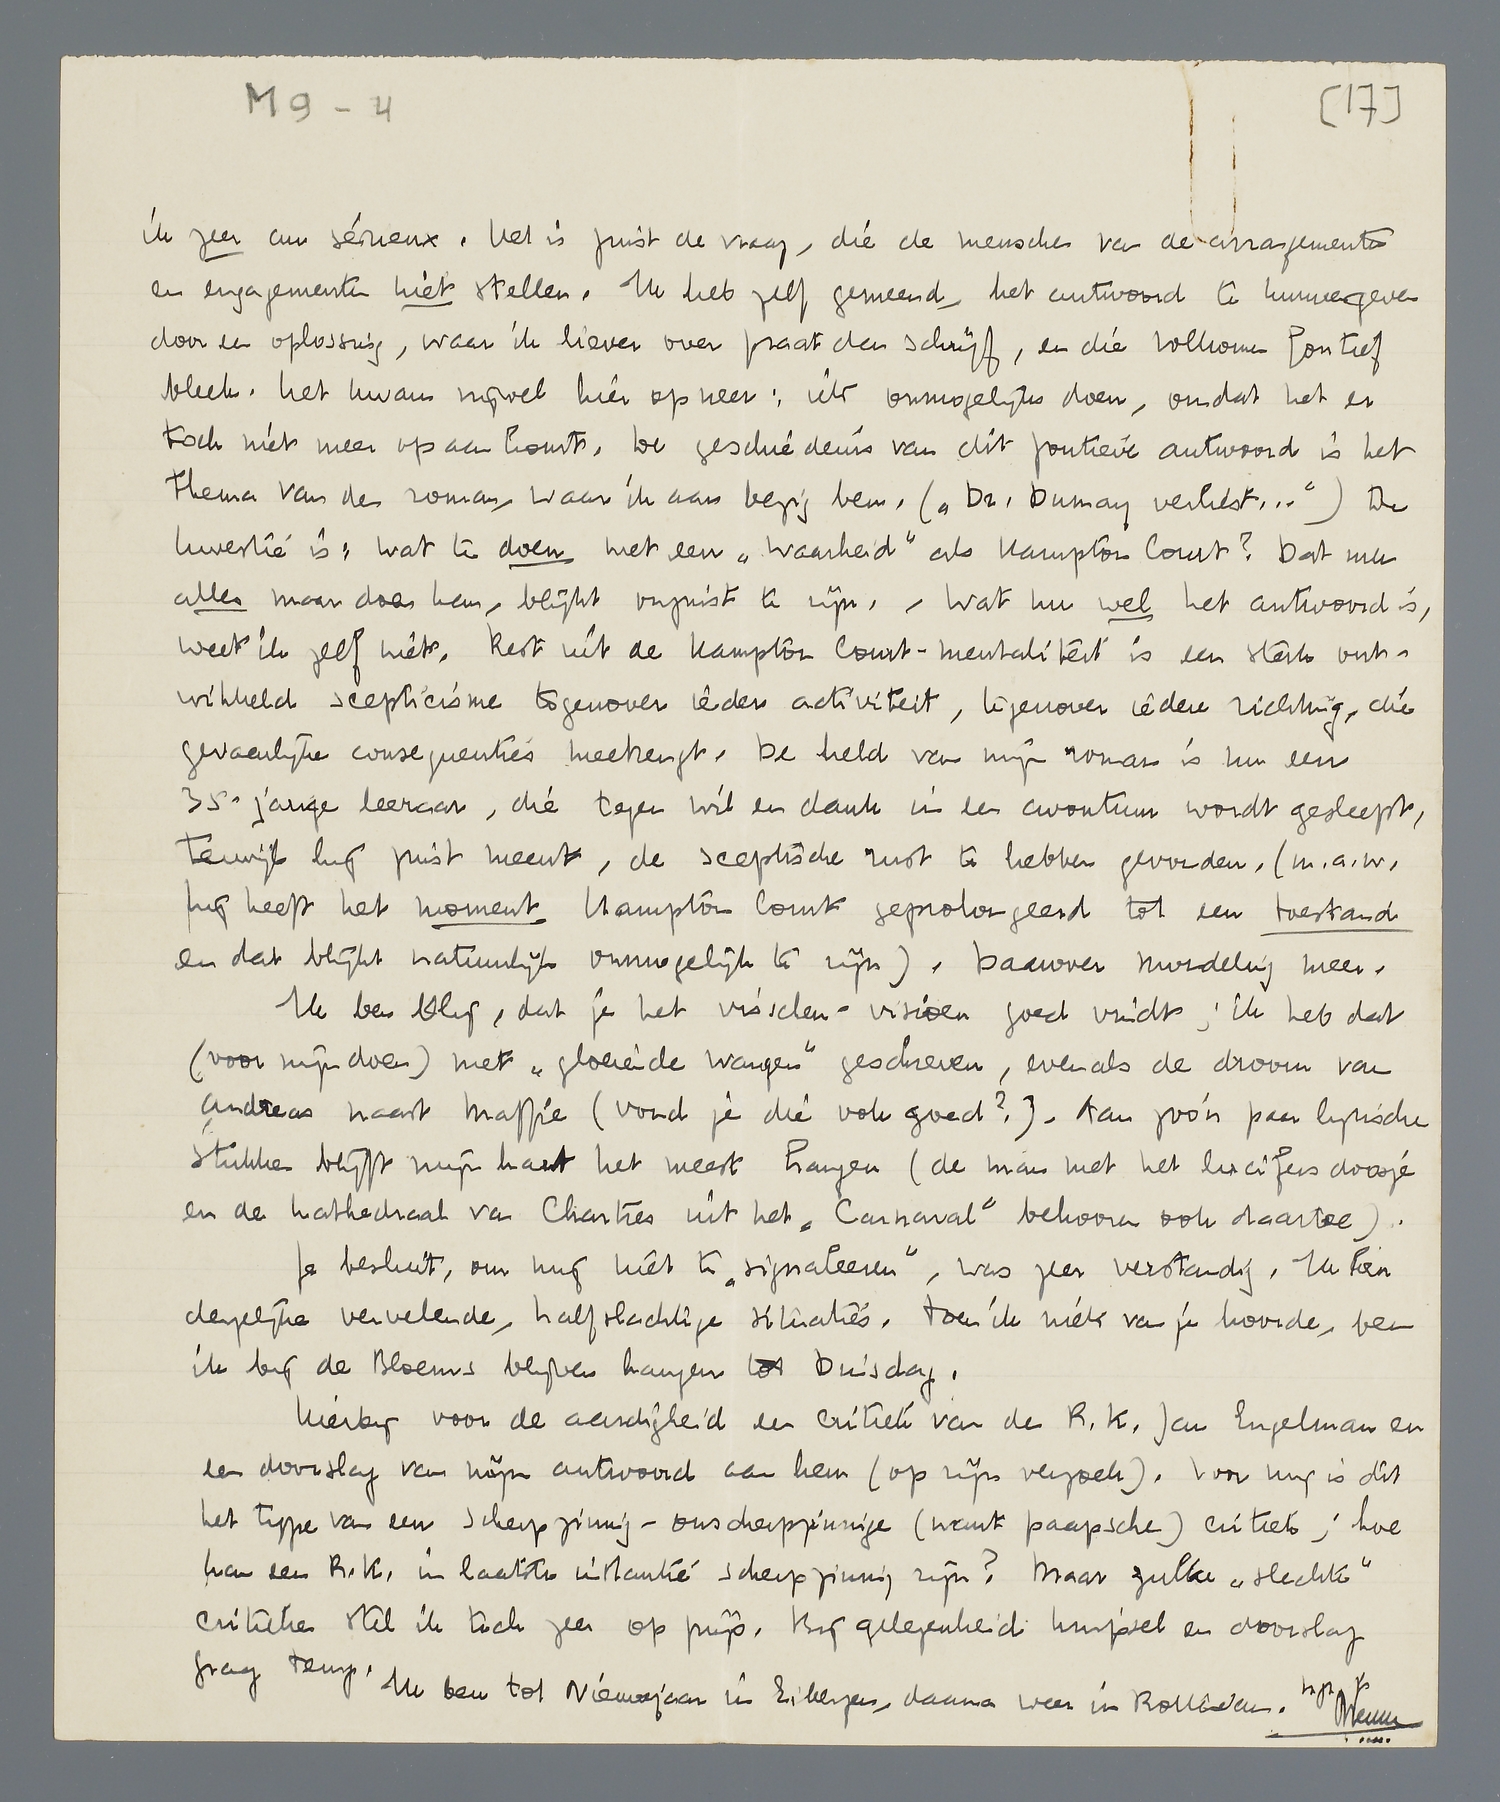 M 9 - 4
[17]
ik zeer au sérieux. Het is juist de vraag, die de menschen van de arrangementen
en engagementen niet stellen. Ik heb zelf gemeend, het antwoord te kunnen geven
door een oplossing, waar ik liever over praat dan schrijf, en die volkomen foutief
bleek. Het kwam nl. wel hier op neer: iets onmogelijks doen, omdat het er
toch niet meer op aan komt. De geschiedenis van dit foutieve antwoord is het
thema van den roman, waar ik aan bezig ben. („Dr. Dumay verliest...“) De
kwestie is: wat te doen met een „waarheid“ als Hampton Court? Dat men
alles maar doen kan, blijkt onjuist te zijn. Wat nu wel het antwoord is,
weet ik zelf niet. Rest uit de Hampton Court-mentaliteit is een sterk ont-
wikkeld scepticisme tegenover iedere activiteit, tegenover iedere richting, die
gevaarlijke consequenties meebrengt. De held van mijn roman is nu een
35-jarige leeraar, die tegen wil en dank in een avontuur wordt gesleept,
terwijl hij juist meent, de sceptische rust te hebben gevonden. (m.a.w.
hij heeft het moment Hampton Court geprolongeerd tot een toestand
en dat blijkt natuurlijk onmogelijk te zijn). Daarover mondeling meer.
Ik ben blij, dat je het visschen-visioen goed vindt; ik heb dat
(voor mijn doen) met „gloeiende wangen“ geschreven, evenals de droom van
Andreas naast Maffie (vond je die ook goed?). Aan zoo'n paar lyrische
stukken blijft mijn hart het meest hangen (de man met het lucifersdoosje
en de kathedraal van Chartres uit het „Carnaval“ behooren ook daartoe).
Je besluit, om mij niet te „signaleeren“, was zeer verstandig. Ik ken
dergelijke vervelende, halfslachtige situaties. Toen ik niets van je hoorde, ben
ik bij de Bloems blijven hangen tot Dinsdag.
Hierbij voor de aardigheid een critiek van den R.K. Jan Engelman en
een doorslag van mijn antwoord aan hem (op zijn verzoek). Voor mij is dit
het type van een scherpzinnig-onscherpzinnige (want paapsche) critiek; hoe
kan een R.K. in laatste instantie scherpzinnig zijn? Maar zulke „slechte“
critieken stel ik toch zeer op prijs. Bij gelegenheid knipsel en doorslag
graag terug. Ik ben tot Nieuwjaar in Eibergen, daarna weer in Rotterdam. Menno